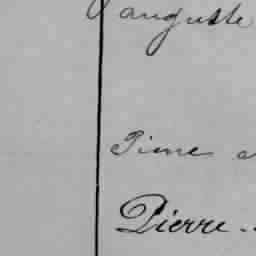 auguste
Pierre
Pierre